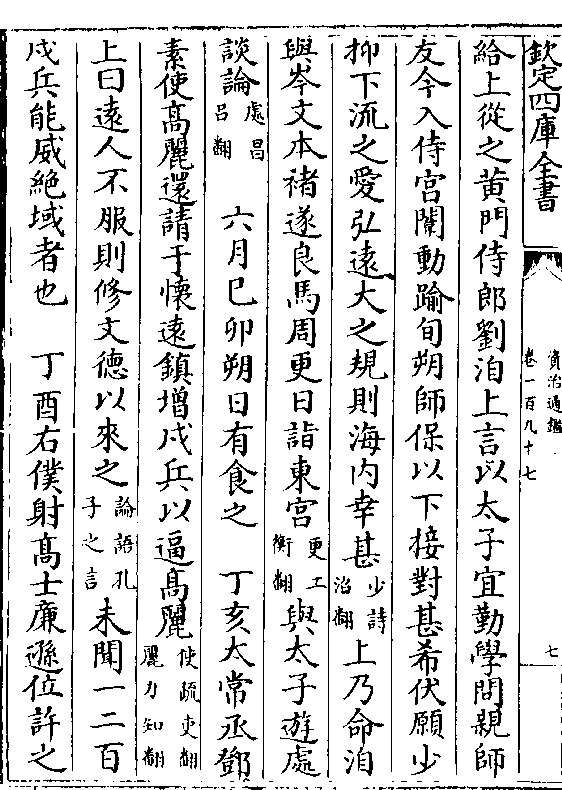 欽定四庫全書
資治通鑑
卷一百九十七
七
給上從之黄門侍郎劉洎上言以太子宜勤學問親師
友今入侍宫闈動踰旬朔師保以下接對甚希伏願少
抑下流之愛弘遠大之規則海内幸甚少詩治翻上乃命洎
與岑文本禇遂良馬周更日詣東宫更工衡翻與太子遊處
談論處昌吕翻　六月己卯朔日有食之　丁亥太常丞鄧
素使髙麗還請于懷遠鎮增戍兵以逼髙麗使疏吏翻麗力知翻
上曰遠人不服則修文德以來之論語孔子之言未聞一二百
戍兵能威絶域者也　丁酉右僕射髙士廉遜位許之